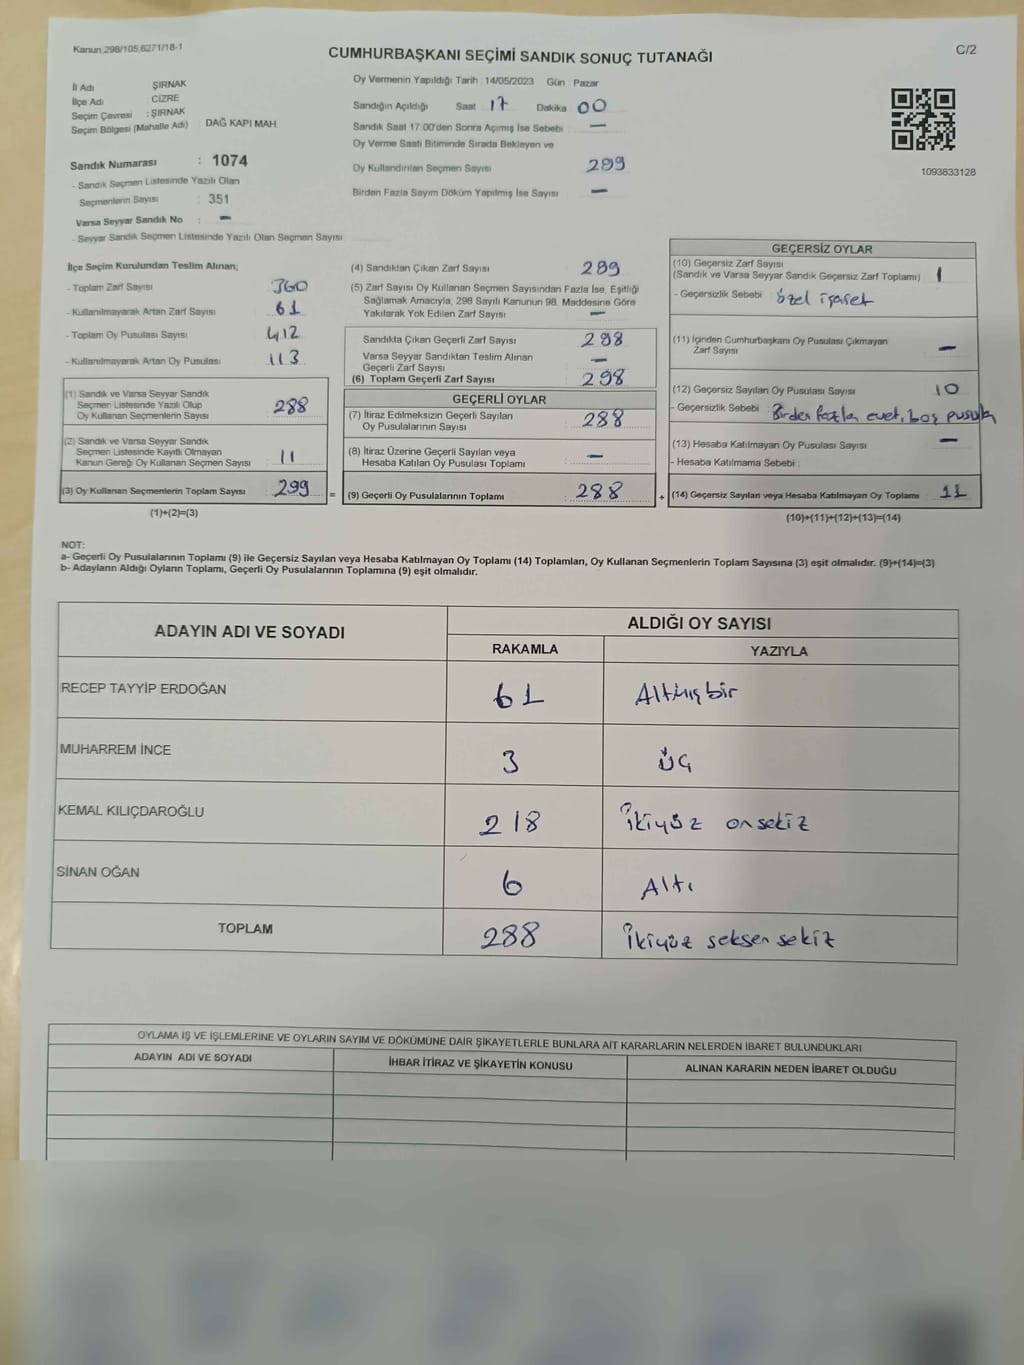 Kanun 298/105,6271/18-1
CUMHURBAŞKANI SEÇİMİ SANDIK SONUÇ TUTANAĞI
C/2
İl Adı ŞIRNAK
İlçe Adı : CİZRE
Seçim Çevresi : ŞIRNAK
Seçim Bölgesi (Mahalle Adı) : DAĞ KAPI MAH.
Sandık Numarası : 1074
- Sandık Seçmen Listesinde Yazılı Olan
Seçmenlerin Sayısı : 351
Varsa Seyyar Sandık No : -
- Seyyar Sandık Seçmen Listesinde Yazılı Olan Seçmen Sayısı
Oy Vermenin Yapıldığı Tarih : 14/05/2023 Gün : Pazar
Sandığın Açıldığı Saat 17 Dakika 00
Sandık Saat 17:00'den Sonra Açımış İse Sebebi : -
Oy Verme Saati Bitiminde Sırada Bekleyen ve
Oy Kullandırılan Seçmen Sayısı 299
Birden Fazla Sayım Döküm Yapılmış İse Sayısı -
1093833128
İlçe Seçim Kurulundan Teslim Alınan;
- Toplam Zarf Sayısı 360
- Kullanılmayarak Artan Zarf Sayısı : 61
- Toplam Oy Pusulası Sayısı : 412
- Kullanılmayarak Artan Oy Pusulası : 113
(1) Sandık ve Varsa Seyyar Sandık
Seçmen Listesinde Yazılı Olup
Oy Kullanan Seçmenlerin Sayısı : 288
(2) Sandık ve Varsa Seyyar Sandık
Seçmen Listesinde Kayıtlı Olmayan
Kanun Gereği Oy Kullanan Seçmen Sayısı : 11
(3) Oy Kullanan Seçmenlerin Toplam Sayısı : 299 =
(1)+(2)=(3)
(4) Sandıktan Çıkan Zarf Sayısı : 299
(5) Zarf Sayısı Oy Kullanan Seçmen Sayısından Fazla İse, Eşitliği
Sağlamak Amacıyla, 298 Sayılı Kanunun 98. Maddesine Göre
Yakılarak Yok Edilen Zarf Sayısı : -
Sandıkta Çıkan Geçerli Zarf Sayısı : 298
Varsa Seyyar Sandıktan Teslim Alınan
Geçerli Zarf Sayısı : -
(6) Toplam Geçerli Zarf Sayısı : 298
GEÇERLİ OYLAR
(7) İtiraz Edilmeksizin Geçerli Sayılan
Oy Pusulalarının Sayısı : 288
(8) İtiraz Üzerine Geçerli Sayılan veya
Hesaba Katılan Oy Pusulası Toplamı : -
(9) Geçerli Oy Pusulalarının Toplamı : 288 +
GEÇERSİZ OYLAR
(10) Geçersiz Zarf Sayısı
(Sandık ve Varsa Seyyar Sandık Geçersiz Zarf Toplamı) : 1
- Geçersizlik Sebebi : özel işaret
(11) İçinden Cumhurbaşkanı Oy Pusulası Çıkmayan
Zarf Sayısı : -
(12) Geçersiz Sayılan Oy Pusulası Sayısı : 10
- Geçersizlik Sebebi : Birden fazla evet, boş pusula
(13) Hesaba Katılmayan Oy Pusulası Sayısı : -
- Hesaba Katılmama Sebebi :
(14) Geçersiz Sayılan veya Hesaba Katılmayan Oy Toplamı : 11
(10)+(11)+(12)+(13)=(14)
NOT:
a- Geçerli Oy Pusulalarının Toplamı (9) ile Geçersiz Sayılan veya Hesaba Katılmayan Oy Toplamı (14) Toplamları, Oy Kullanan Seçmenlerin Toplam Sayısına (3) eşit olmalıdır. (9)+(14)=(3)
b- Adayların Aldığı Oyların Toplamı, Geçerli Oy Pusulalarının Toplamına (9) eşit olmalıdır.
ADAYIN ADI VE SOYADI ALDIĞI OY SAYISI
RAKAMLA YAZIYLA
RECEP TAYYİP ERDOĞAN 61 Altmışbir
MUHARREM İNCE 3 üç
KEMAL KILIÇDAROĞLU 218 ikiyüz onsekiz
SİNAN OĞAN 6 Altı
TOPLAM 288 ikiyüz seksen sekiz
OYLAMA İŞ VE İŞLEMLERİNE VE OYLARIN SAYIM VE DÖKÜMÜNE DAİR ŞİKAYETLERLE BUNLARA AİT KARARLARIN NELERDEN İBARET BULUNDUKLARI
ADAYIN ADI VE SOYADI İHBAR İTİRAZ VE ŞİKAYETİN KONUSU ALINAN KARARIN NEDEN İBARET OLDUĞU